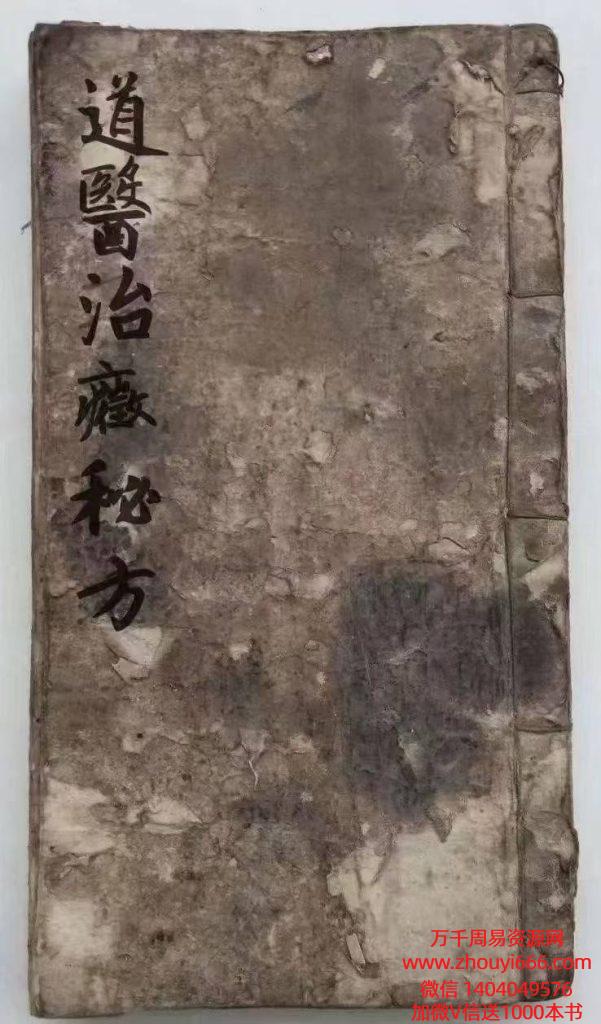 道醫治癥秘方
万千周易资源网
www.zhouyi666.com
微信 1404049576
加微V信送1000本书